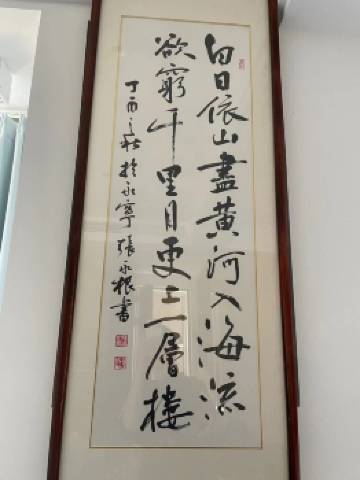 白日依山盡黄河入海流
欲窮千里目更上一層樓
丁酉之秋於永寧張永根書